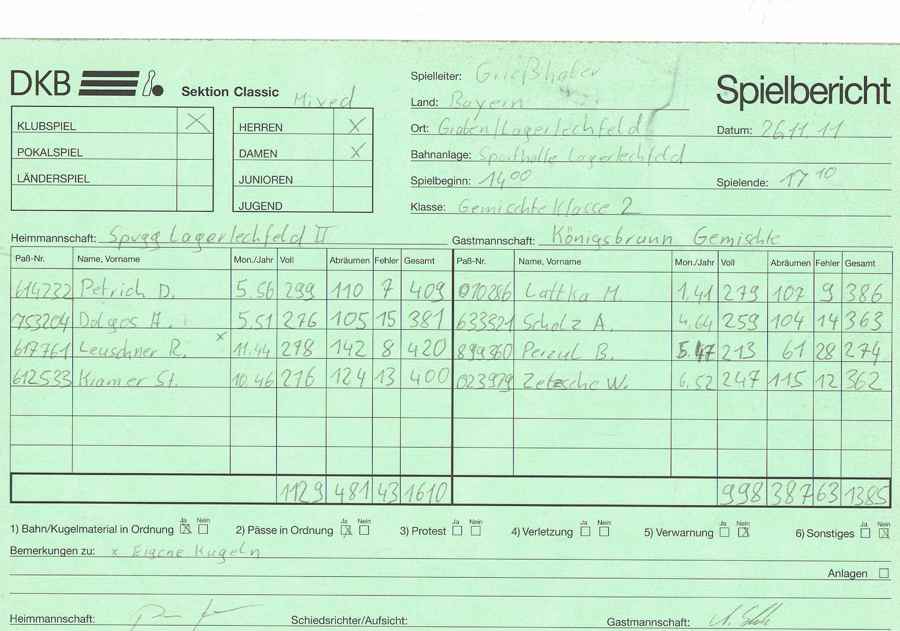 DKB Sektion Classic
Spielbericht
Mixed
KLUBSPIEL X
POKALSPIEL
LÄNDERSPIEL
HERREN X
DAMEN X
JUNIOREN
JUGEND
Spielleiter: Grießhaber
Land: Bayern
Ort: Graben/Lagerlechfeld Datum: 26.11.11
Bahnanlage: Sporthalle Lagerlechfeld
Spielbeginn: 14 00 Spielende: 17 10
Klasse: Gemischte Klasse 2
Heimmannschaft: Spvgg Lagerlechfeld II Gastmannschaft: Königsbrunn Gemischte
Paß-Nr. Name, Vorname Mon./Jahr Voll Abräumen Fehler Gesamt Paß-Nr. Name, Vorname Mon./Jahr Voll Abräumen Fehler Gesamt
614232 Petrich D. 5.56 299 110 7 409 010286 Lattka M. 1.41 279 107 9 386
053204 Dolgos A. 5.51 276 105 15 381 633521 Scholz A. 4.64 259 104 14 363
617761 Leuschner R. x 11.44 278 142 8 420 899960 Perzul B. 5.47 213 61 28 274
612533 Kramer St. 10.46 276 124 13 400 023979 Zetzsche W. 6.52 247 115 12 362
1129 481 43 1610 998 387 63 1385
1) Bahn/Kugelmaterial in Ordnung Ja X Nein 2) Pässe in Ordnung Ja X Nein 3) Protest Ja Nein 4) Verletzung Ja Nein 5) Verwarnung Ja Nein X 6) Sonstiges Ja Nein X
Bemerkungen zu: x Eigene Kugeln
Anlagen
Heimmannschaft: Schiedsrichter/Aufsicht: Gastmannschaft: